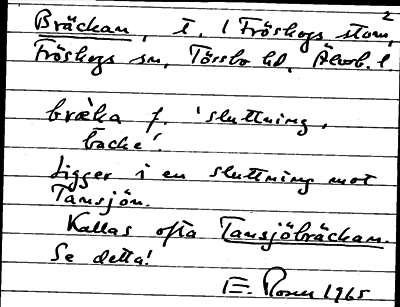 2
Bräckan, t. l Fröskogs stom,
Fröskogs sn, Tössbo hd, Älvsb. l.
bräka f. 'sluttning,
backe'.
Ligger i en sluttning mot
Tansjön.
Kallas ofta Tansjöbräckan.
Se detta!
E. 1965